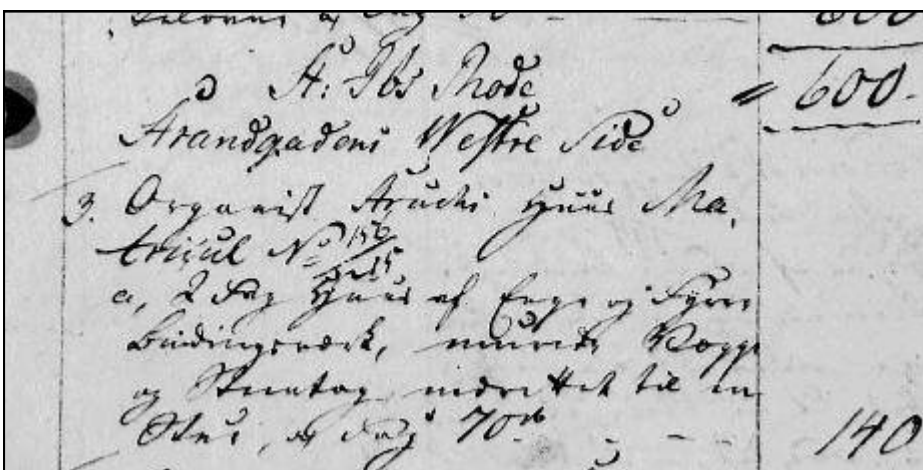 600
St: Ibs Rode
= 600.
Strandgadens Westre Side
3. Organist Struchs Huus Ma„
tricul No 156
a, 2 Fag Huus af Eege og Fyrre
Bindingsværk, murede Vægge
og Steentag indrettet til en
Stue, af Fag 70 rd - - - 140